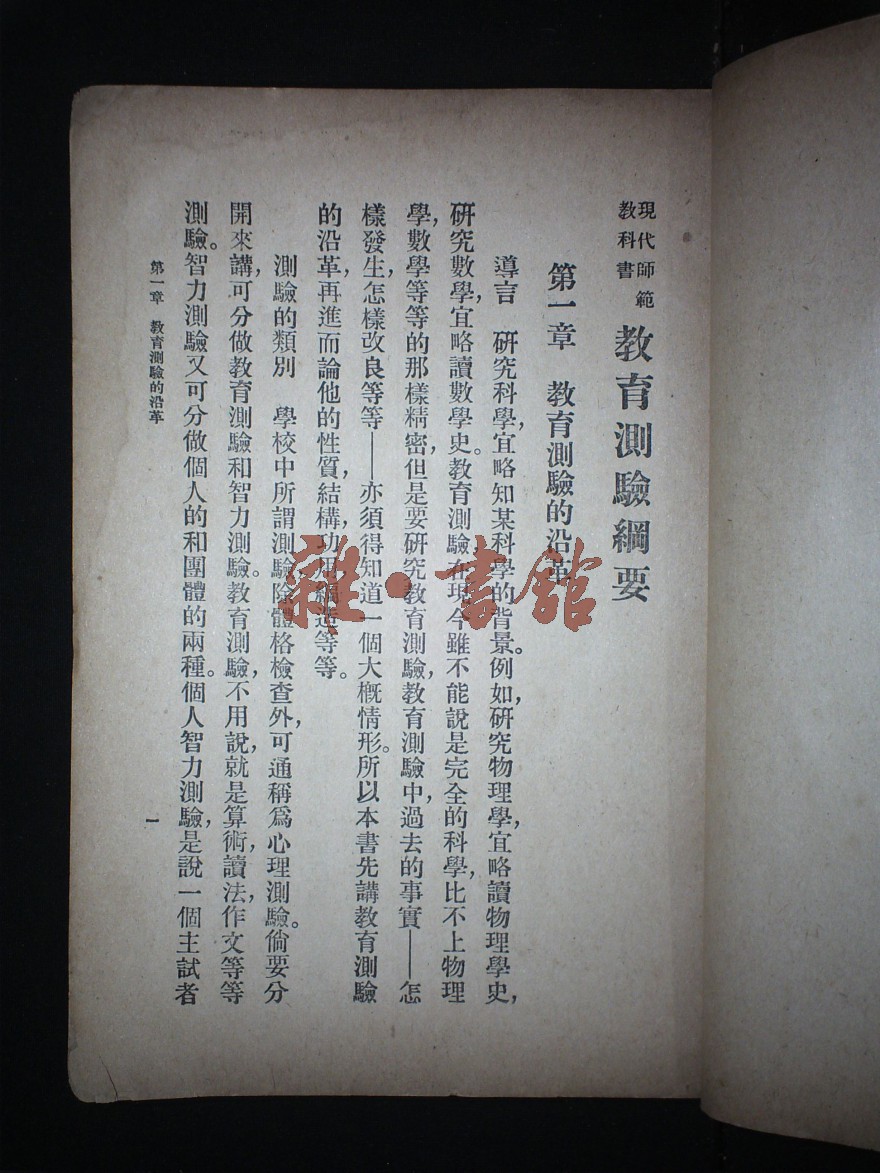 現代師範
教科書
教育測驗綱要
第一章　教育測驗的沿革
導言　研究科學，宜略知某科學的背景。例如，研究物理學，宜略讀物理學史，
研究數學，宜略讀數學史。教育測驗在現今雖不能說是完全的科學，比不上物理
學，數學等等的那樣精密，但是要研究教育測驗，教育測驗中，過去的事實——怎
樣發生，怎樣改良等等——亦須得知道一個大概情形。所以本書先講教育測驗
的沿革，再進而論他的性質，結構，功用，編造等等。
測驗的類別　學校中所謂測驗，除體格檢查外，可通稱爲心理測驗。倘要分
開來講，可分做教育測驗和智力測驗。教育測驗，不用說，就是算術，讀法，作文等等
測驗。智力測驗又可分做個人的和團體的兩種。個人智力測驗，是說一個主試者
第一章　教育測驗的沿革
一
雜·書館